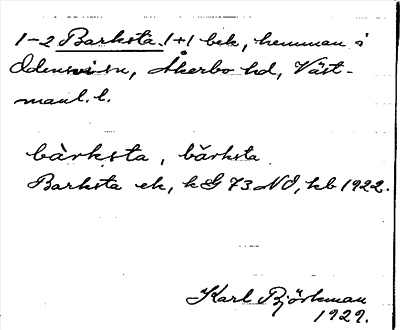 1-2 Barksta 1+1 bek, hemman i
Odensvi sn, Åkerbo hd, Väst-
manl. l.
bàrksta, bărksta
Barksta ek, k G 73 NO, kb 1922.
Karl Björkman
1929.